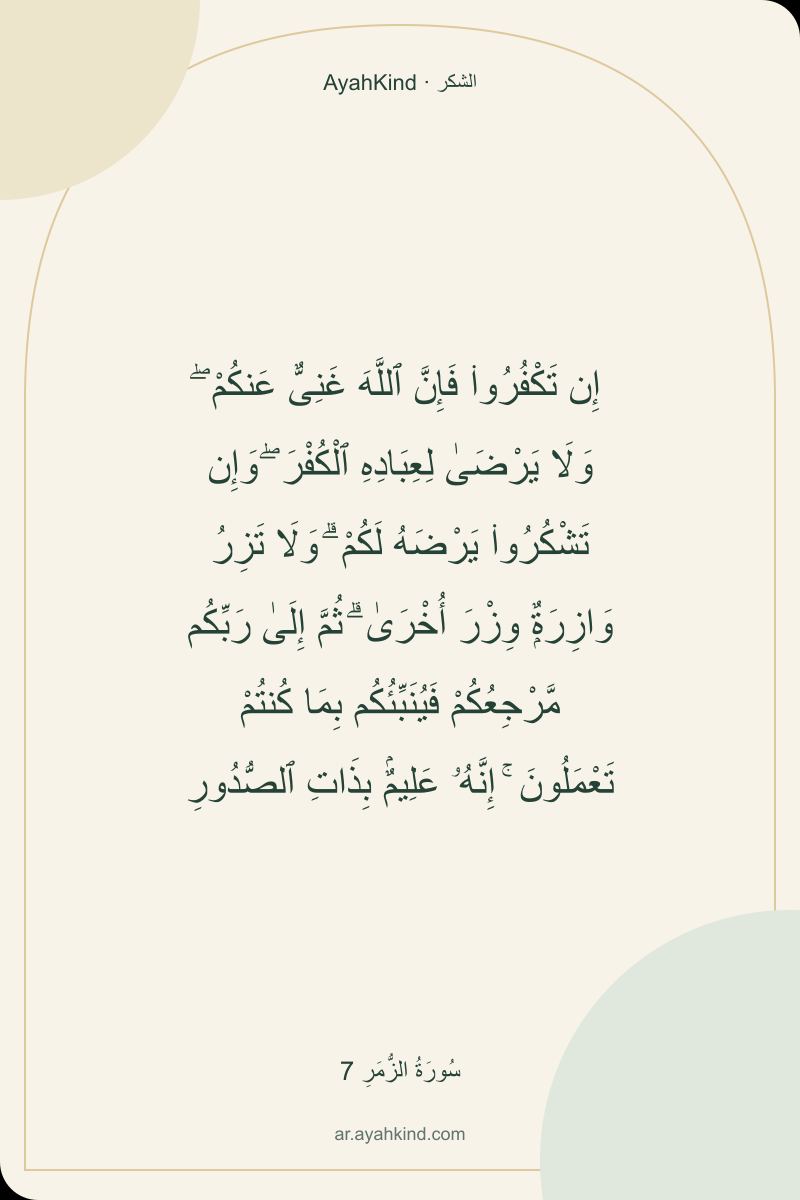 AyahKind · الشكر
إِن تَكْفُرُوا۟ فَإِنَّ ٱللَّهَ غَنِىٌّ عَنكُمْ ۖ
وَلَا يَرْضَىٰ لِعِبَادِهِ ٱلْكُفْرَ ۖ وَإِن
تَشْكُرُوا۟ يَرْضَهُ لَكُمْ ۗ وَلَا تَزِرُ
وَازِرَةٌۭ وِزْرَ أُخْرَىٰ ۗ ثُمَّ إِلَىٰ رَبِّكُم
مَّرْجِعُكُمْ فَيُنَبِّئُكُم بِمَا كُنتُمْ
تَعْمَلُونَ ۚ إِنَّهُۥ عَلِيمٌۢ بِذَاتِ ٱلصُّدُورِ
سُورَةُ الزُّمَرِ 7
ar.ayahkind.com